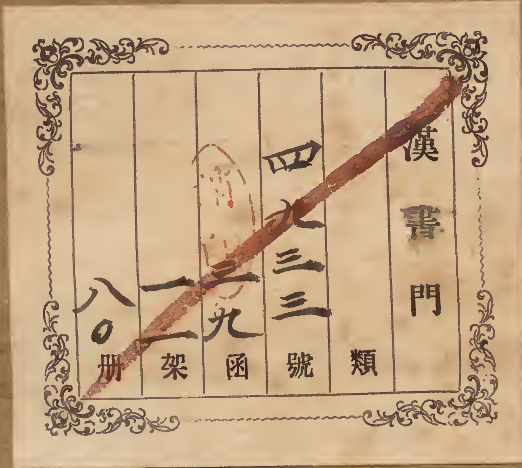 漢書門
類
四九三三號
三九函
一一架
八〇册